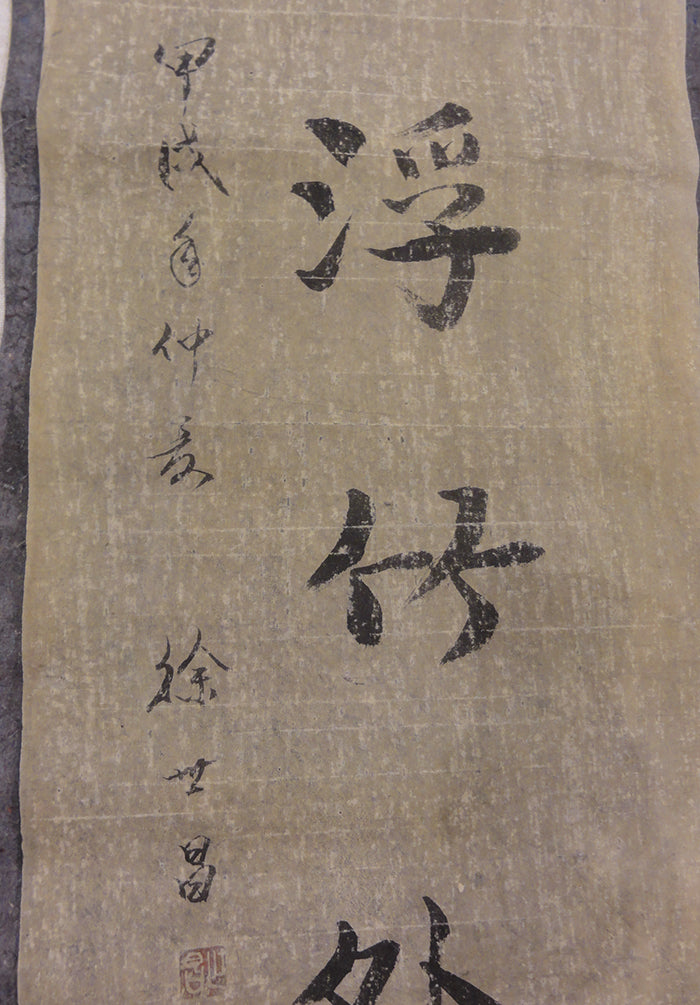 浮竹外
甲戌年仲夏 徐世昌